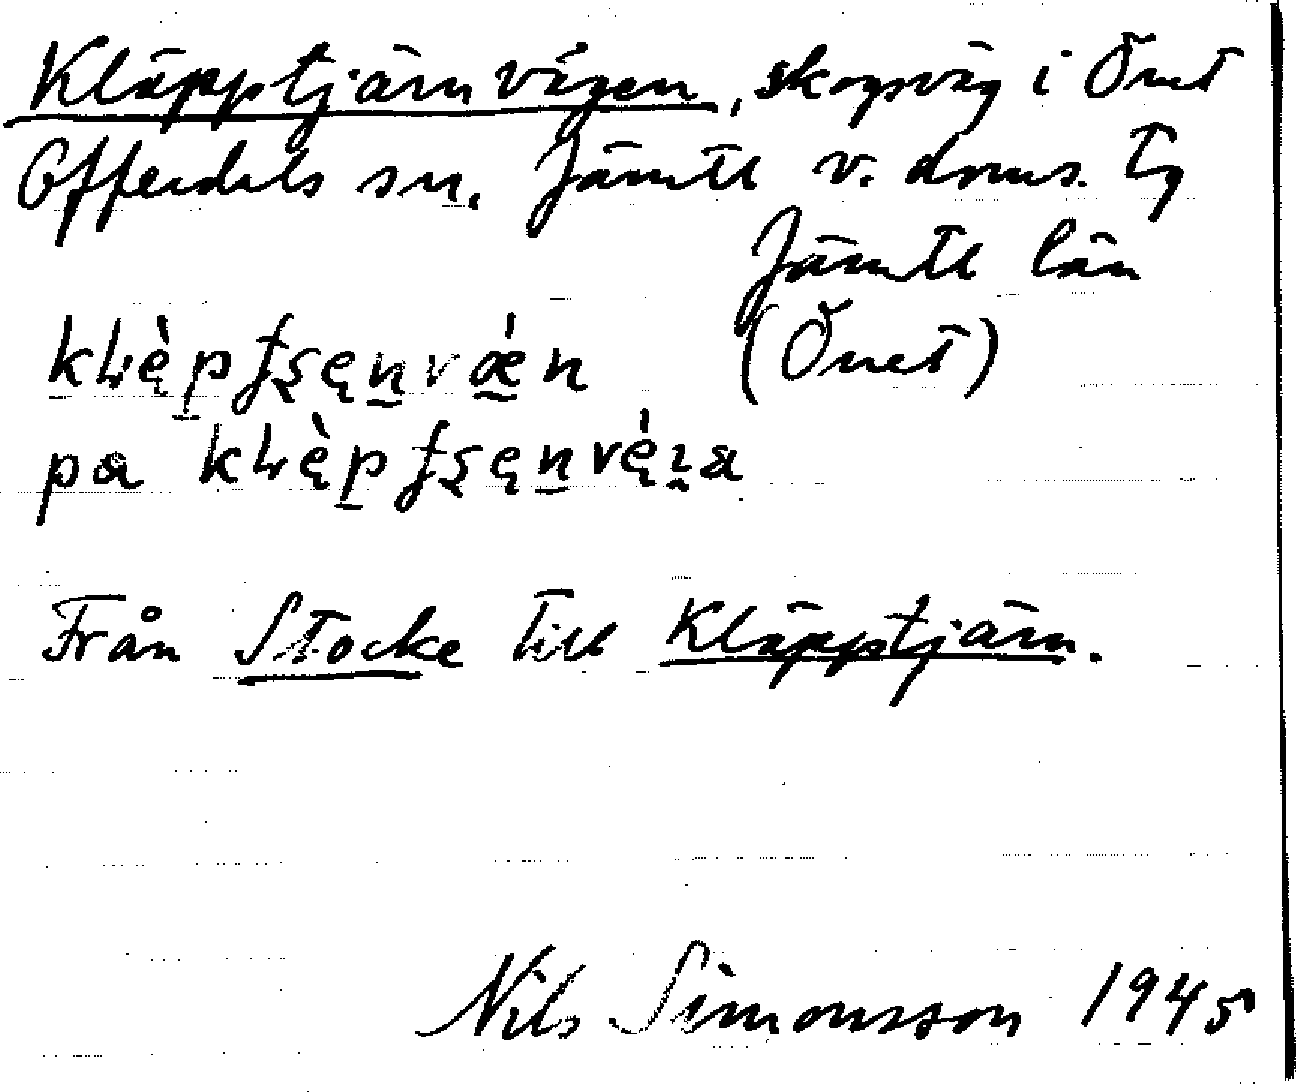 Kläpptjärnvägen, skogsväg i Önet
Offerdals sn. Jämtl v. doms. Tg
Jämtl län
(Önet)
Från Stocke till Kläpptjärn.
Nils Simonsson 1945